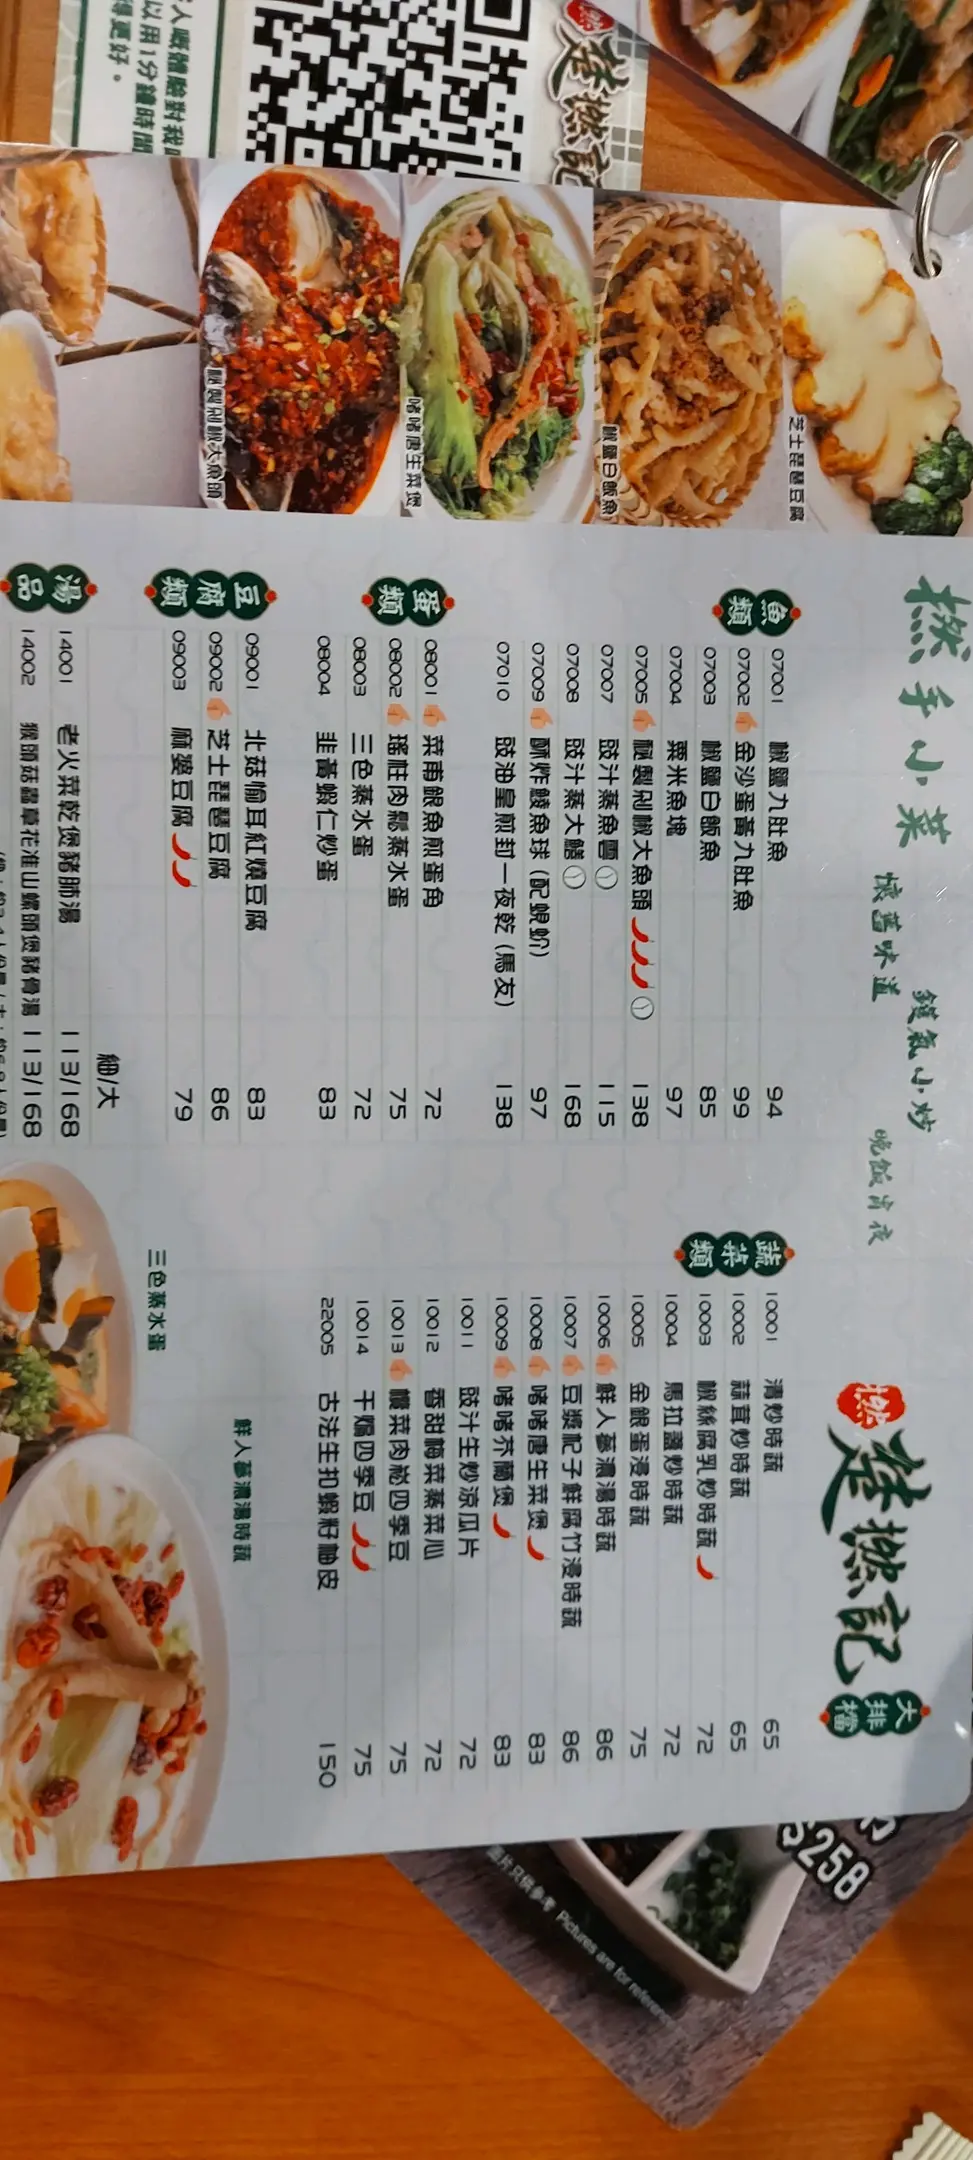 人嘅體驗對我
以用1分鐘時間
更好。
楚撚記
秘製剁椒大魚頭
啫啫唐生菜煲
椒鹽白飯魚
芝士琵琶豆腐
撚手小菜
懷舊味道
鑊氣小炒
晚飯宵夜
撚
楚撚記
大排檔
魚類
07001 椒鹽九肚魚 94
07002 金沙蛋黃九肚魚 99
07003 椒鹽白飯魚 85
07004 粟米魚塊 97
07005 秘製剁椒大魚頭 138
07007 豉汁蒸魚雲 115
07008 豉汁蒸大鱔 168
07009 酥炸鯪魚球 (配蜆蚧) 97
07010 豉油皇煎封一夜乾 (馬友) 138
蛋類
08001 菜甫銀魚煎蛋角 72
08002 瑤柱肉鬆蒸水蛋 75
08003 三色蒸水蛋 72
08004 韭黃蝦仁炒蛋 83
豆腐類
09001 北菇愉耳紅燒豆腐 83
09002 芝士琵琶豆腐 86
09003 麻婆豆腐 79
湯品
細/大
14001 老火菜乾煲豬肺湯 113/168
14002 猴頭菇蟲草花淮山螺頭煲豬骨湯 113/168
蔬菜類
10001 清炒時蔬 65
10002 蒜茸炒時蔬 65
10003 椒絲腐乳炒時蔬 72
10004 馬拉盞炒時蔬 72
10005 金銀蛋浸時蔬 75
10006 鮮人蔘濃湯時蔬 86
10007 豆漿杞子鮮腐竹浸時蔬 86
10008 啫啫唐生菜煲 83
10009 啫啫芥蘭煲 83
10011 豉汁生炒涼瓜片 72
10012 香甜梅菜蒸菜心 72
10013 欖菜肉崧四季豆 75
10014 干煸四季豆 75
22005 古法生扣蝦籽柚皮 150
三色蒸水蛋
鮮人蔘濃湯時蔬
$258
圖片只供參考 Pictures are for reference